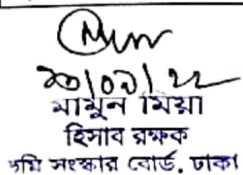 ২০/০৯/২২
মামুন মিয়া
হিসাব রক্ষক
ভূমি সংস্কার বোর্ড, ঢাকা